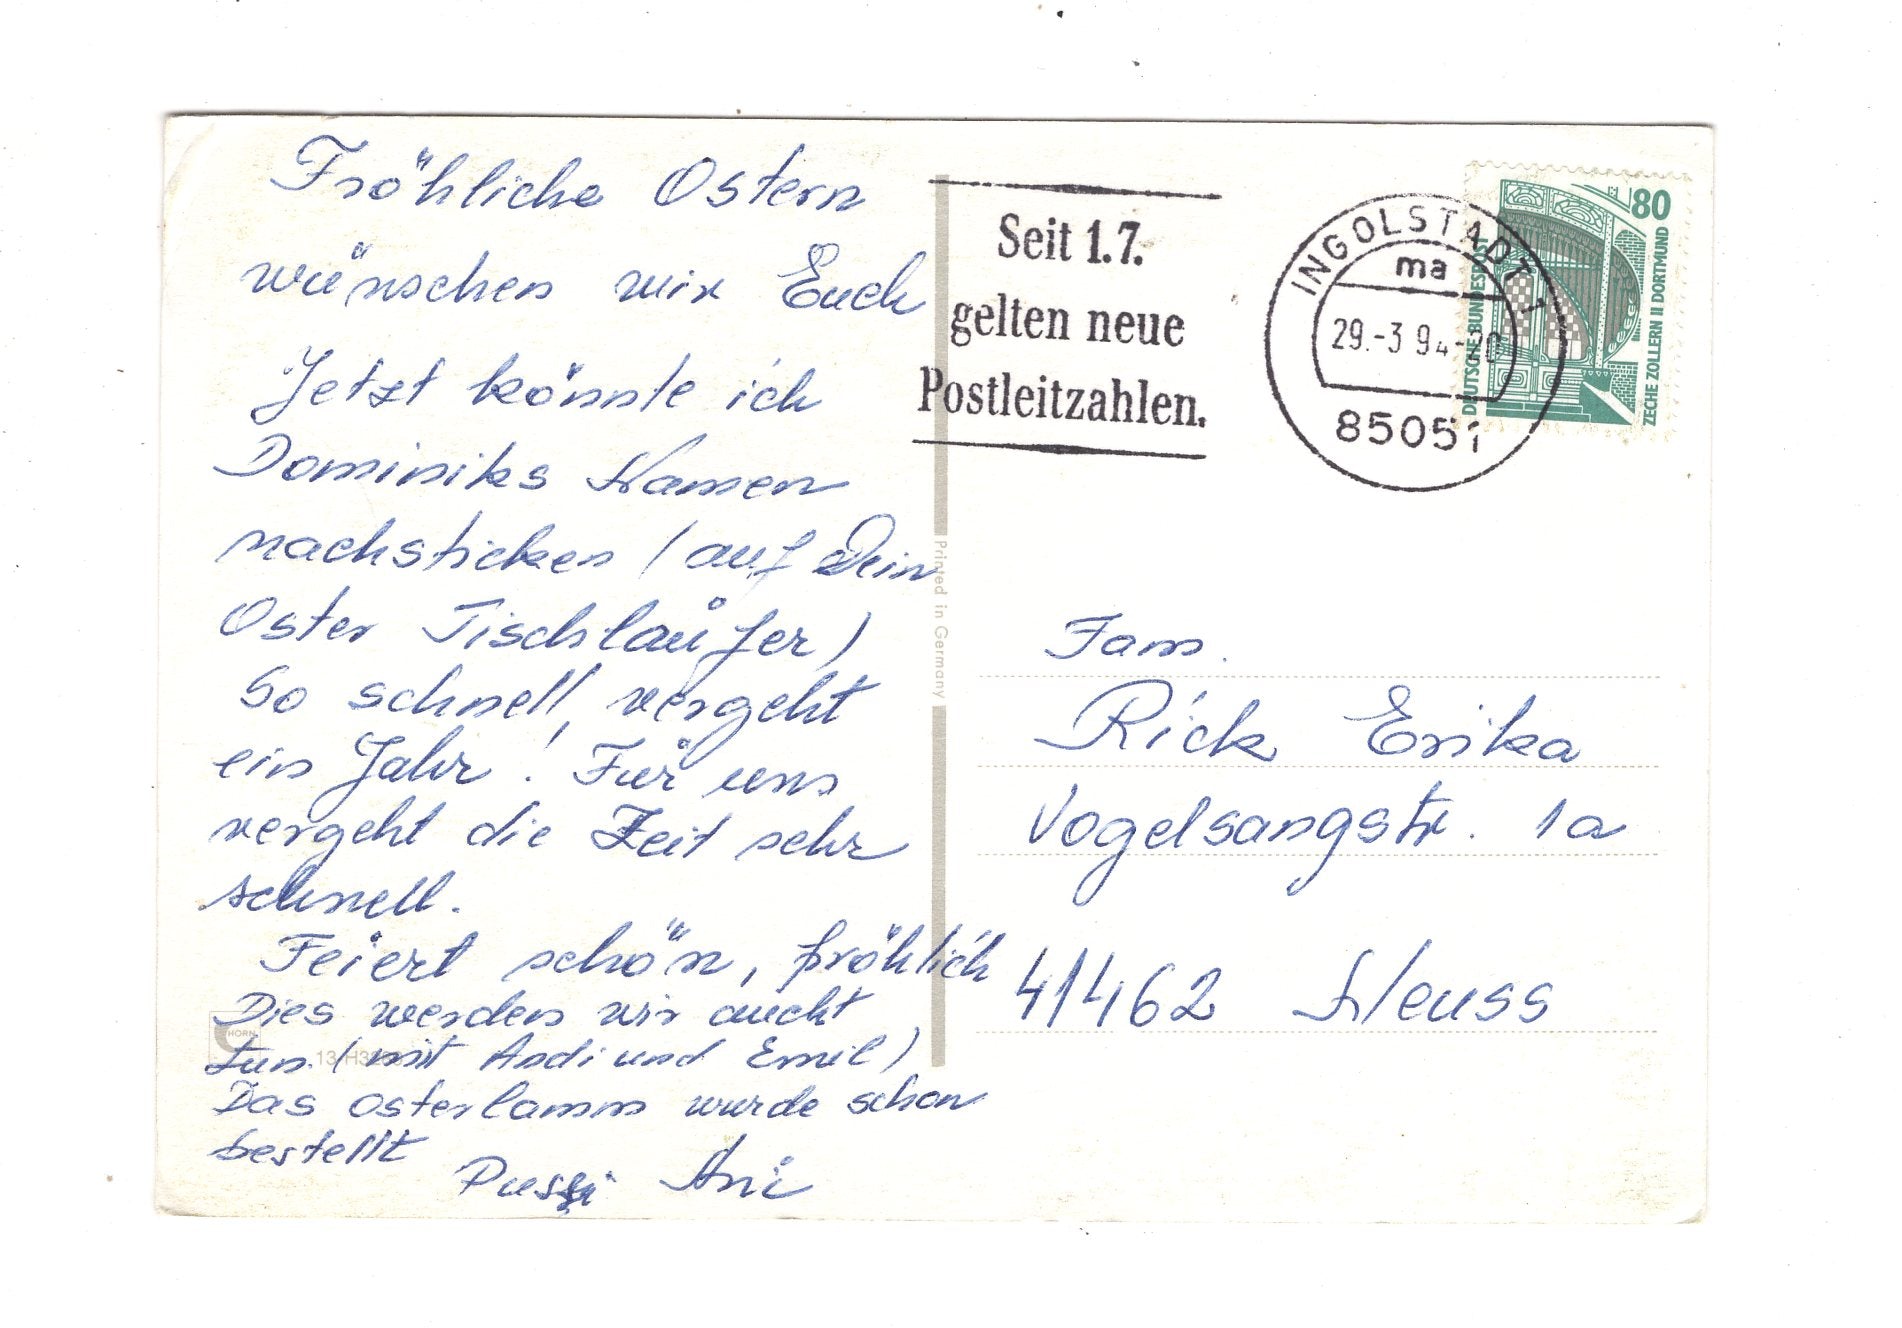 Fröhliche Ostern
wünschen wir Euch
Jetzt könnte ich
Dominiks Namen
nachsticken (auf Dein
Oster Tischläufer)
So schnell vergeht
ein Jahr! Für uns
vergeht die Zeit sehr
schnell.
Feiert schön, fröhlich
Dies werden wir aucht
tun. (mit Andi und Emil)
Das Osterlamm wurde schon
bestellt
Pussi Ani
HORN
Printed in Germany
Seit 1.7.
gelten neue
Postleitzahlen.
INGOLSTADT 1
ma
29.-3 94-20
85051
80
DEUTSCHE BUNDESPOST
ZECHE ZOLLERN II DORTMUND
Fam.
Rick Erika
Vogelsangstr. 1a
41462 Neuss